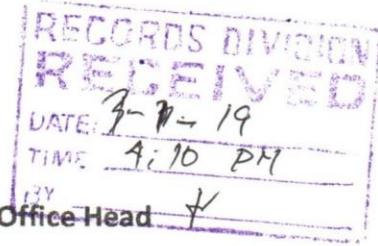 RECORDS DIVISION
RECEIVED
DATE: 19
TIME 4:10 PM
BY
Office Head